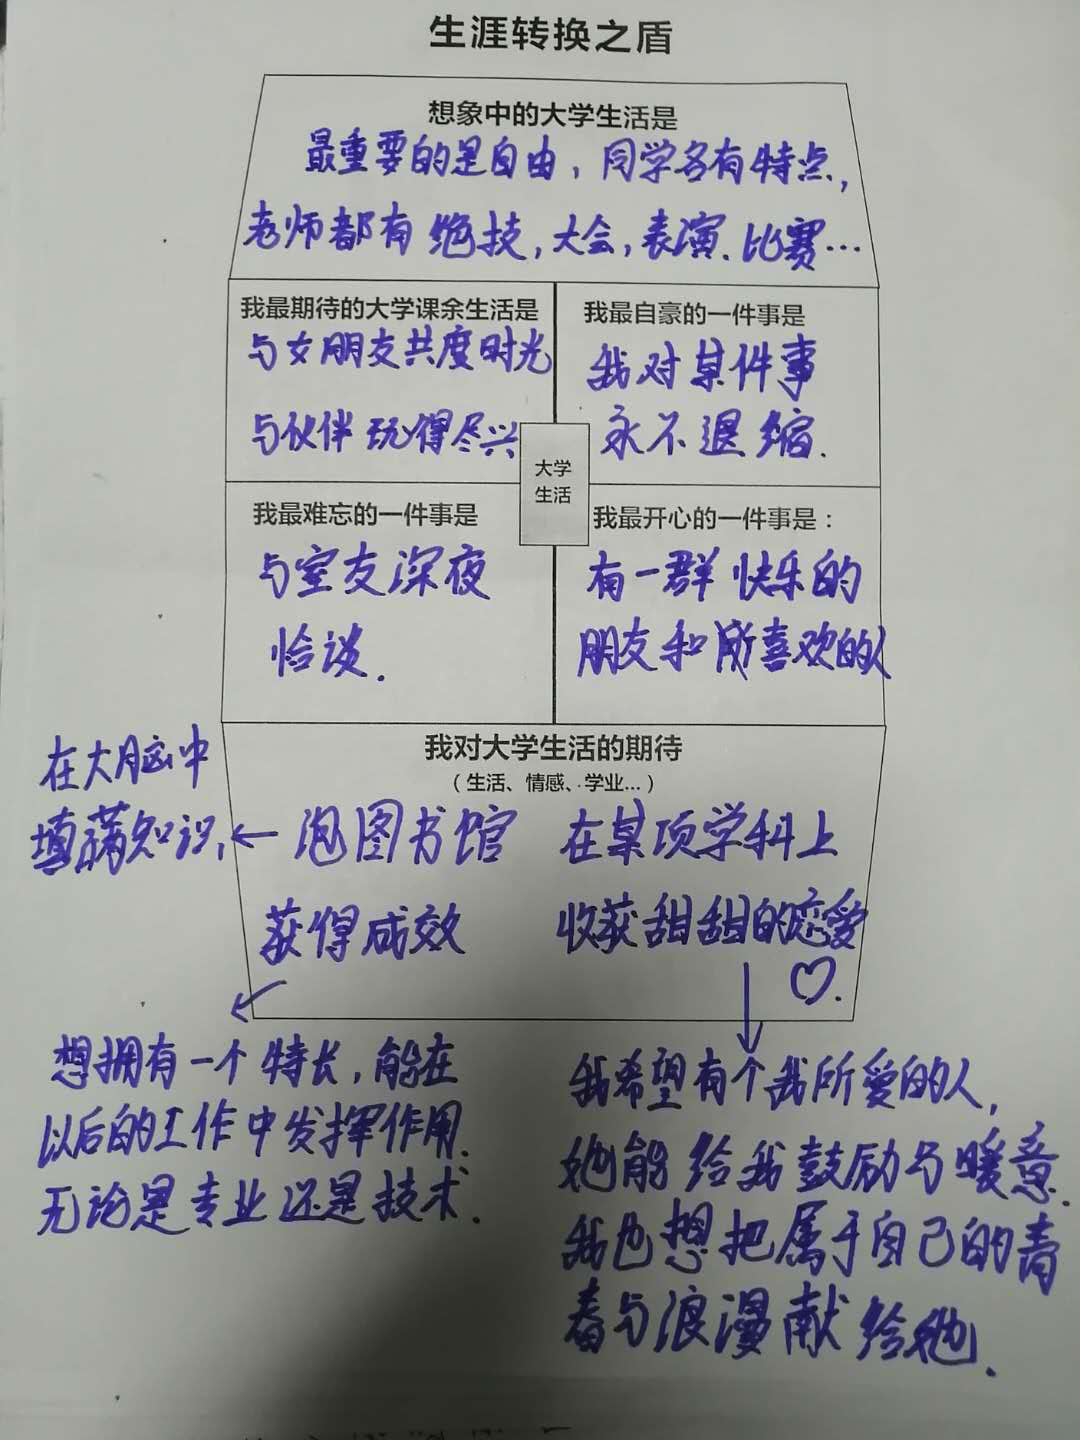 生涯转换之盾
想象中的大学生活是
最重要的是自由，同学各有特点，
老师都有绝技，大会，表演.比赛…
我最期待的大学课余生活是
与女朋友共度时光
与伙伴玩得尽兴
我最自豪的一件事是
我对某件事
永不退缩.
大学
生活
我最难忘的一件事是
与室友深夜
恰谈.
我最开心的一件事是：
有一群快乐的
朋友和所喜欢的人
我对大学生活的期待
（生活、情感、学业…）
泡图书馆
在大脑中
填满知识,
在某项学科上
获得成效
收获甜甜的恋爱
想拥有一个特长,能在
以后的工作中发挥作用.
无论是专业还是技术.
我希望有个我所爱的人,
她能给我鼓励与暖意.
我也想把属于自己的青
春与浪漫献给她.